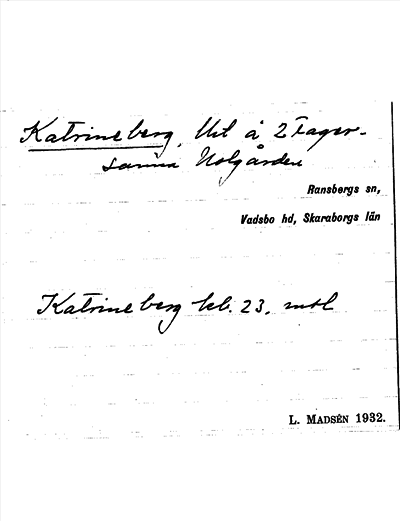 Katrineberg, Utl å 2 Fager-
sanna Nolgården
Ransbergs sn,
Vadsbo hd, Skaraborgs län
Katrineberg lct. 23. mtl
L. MADSÉN 1932.